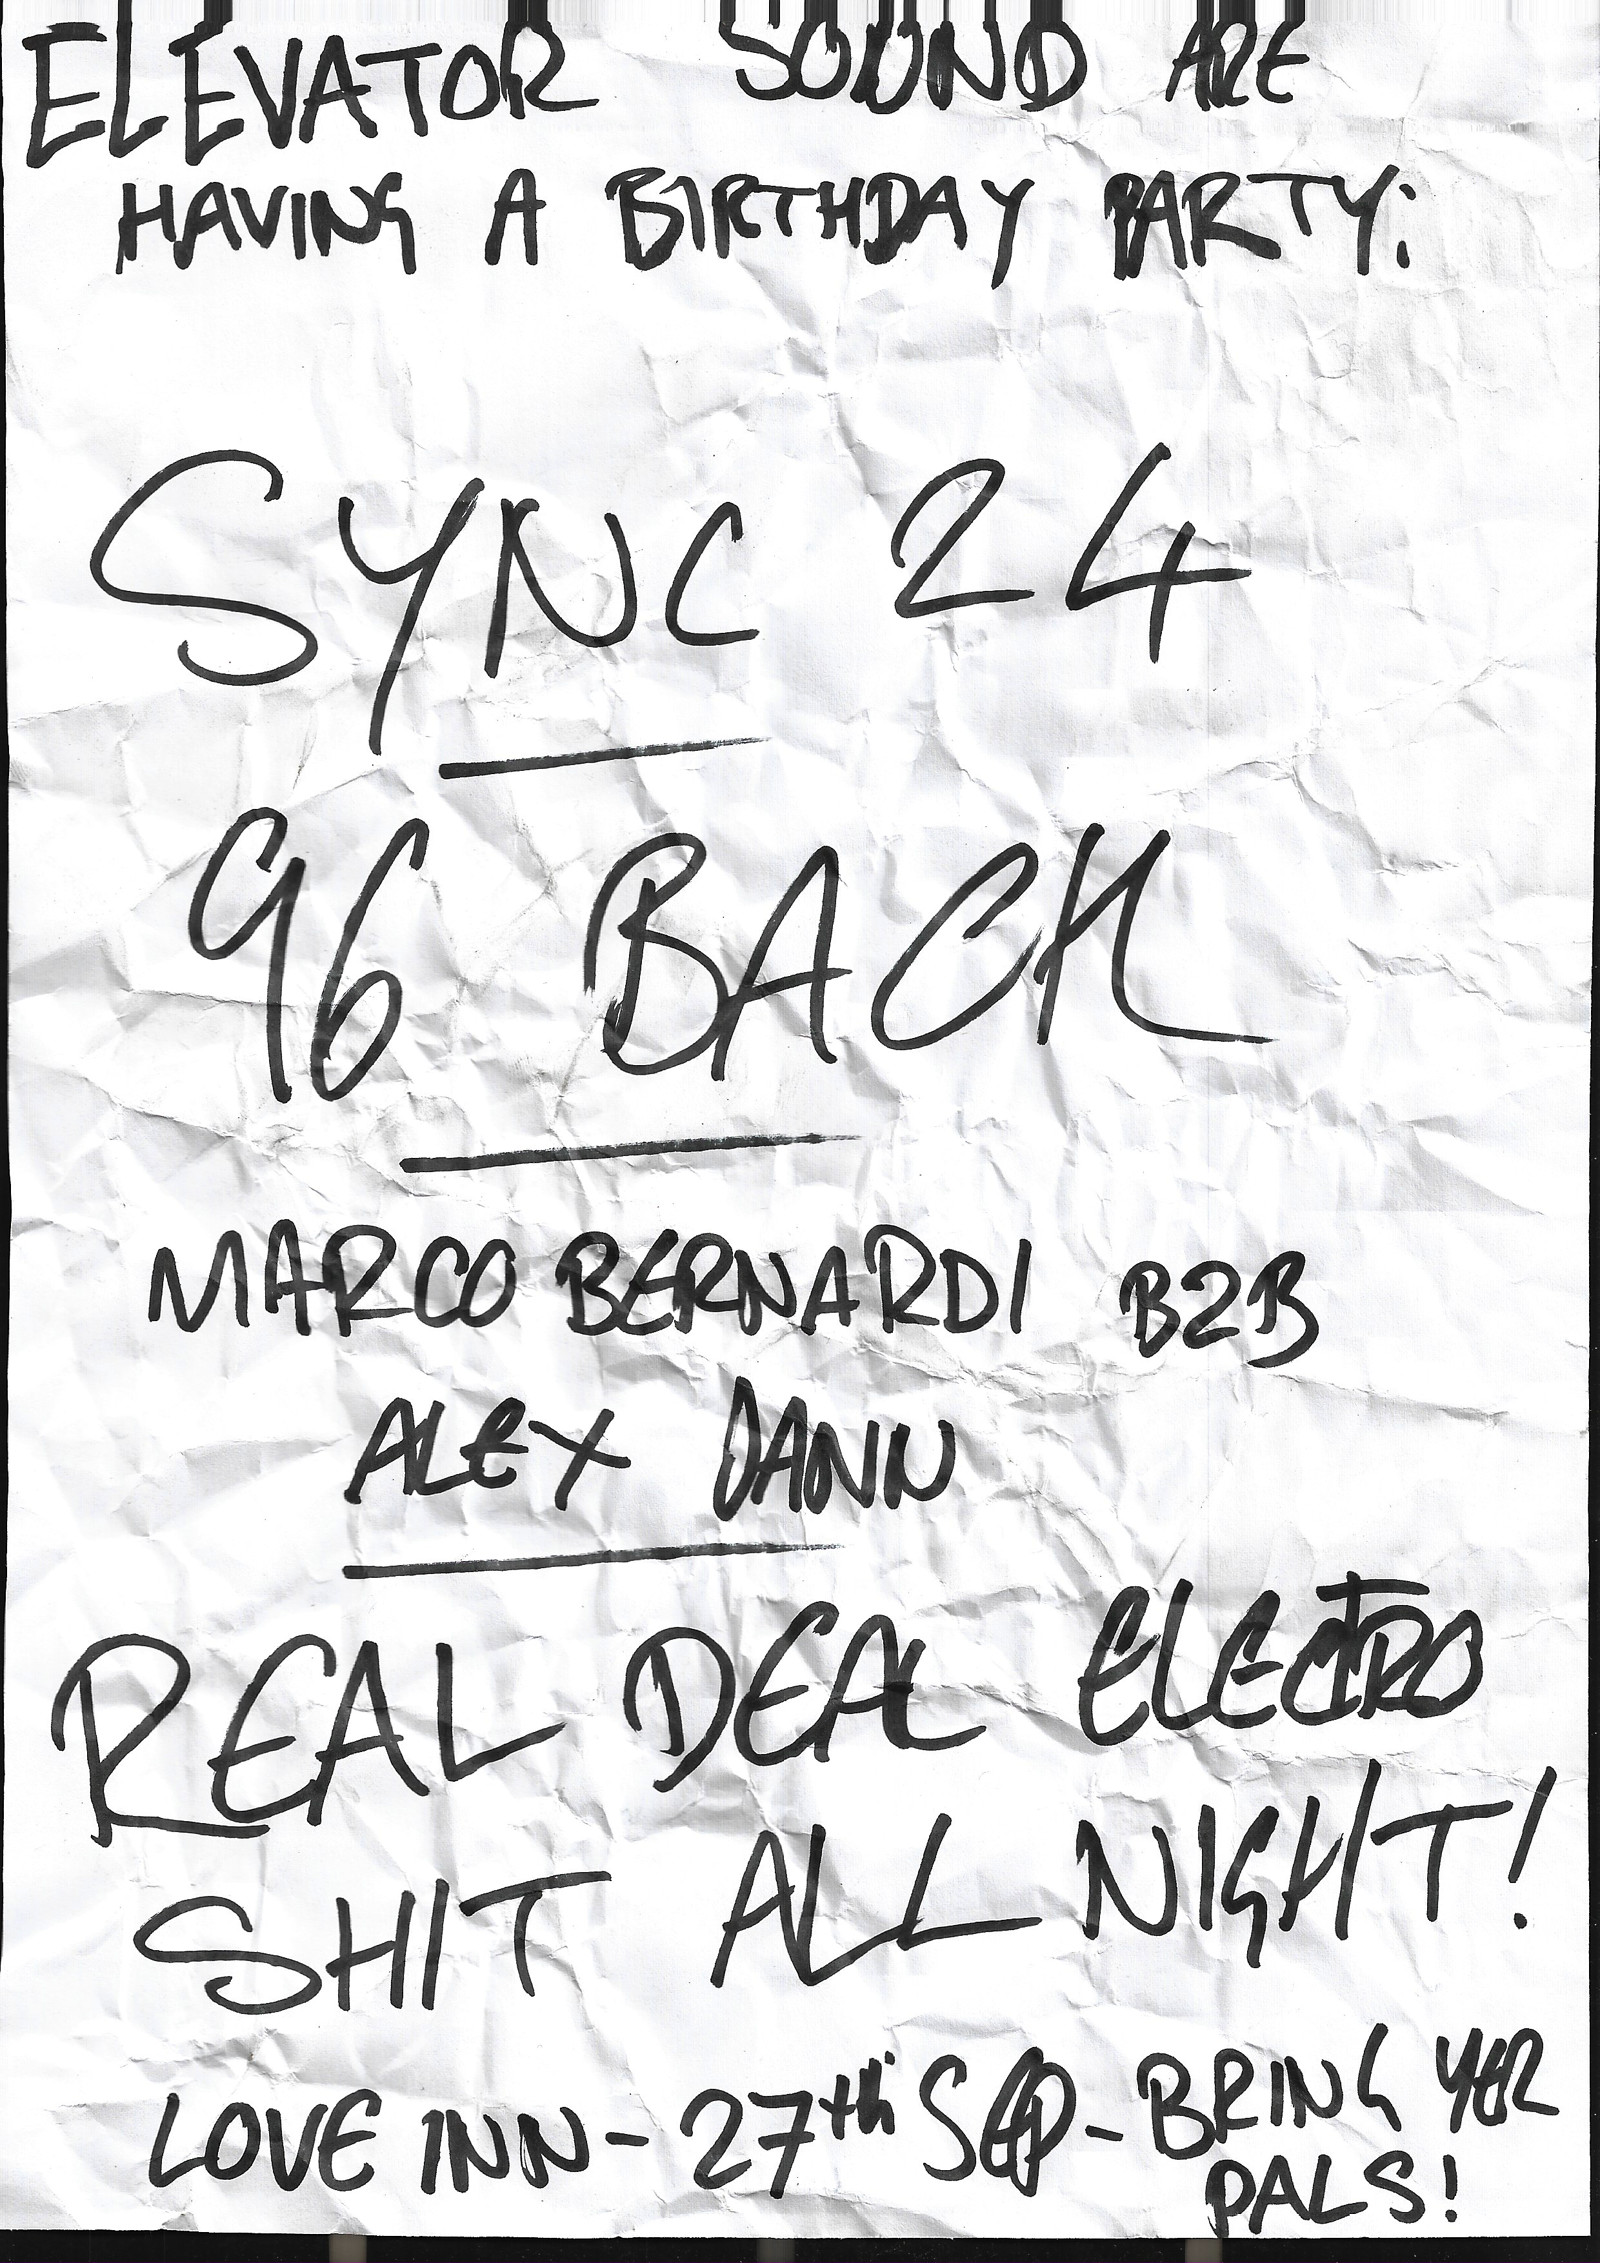 ELEVATOR SOUND ARE
HAVING A BIRTHDAY PARTY:
SYNC 24
96 BACK
MARCO BERNARDI B2B
ALEX DANN
REAL DEAL ELECTRO
SHIT ALL NIGHT!
LOVE INN - 27th SEP - BRING YER
PALS!